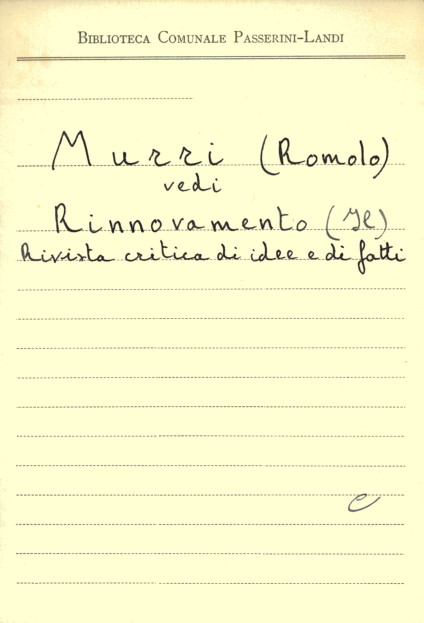 BIBLIOTECA COMUNALE PASSERINI-LANDI
Murri (Romolo)
vedi
Rinnovamento (Il)
Rivista critica di idee e di fatti
e